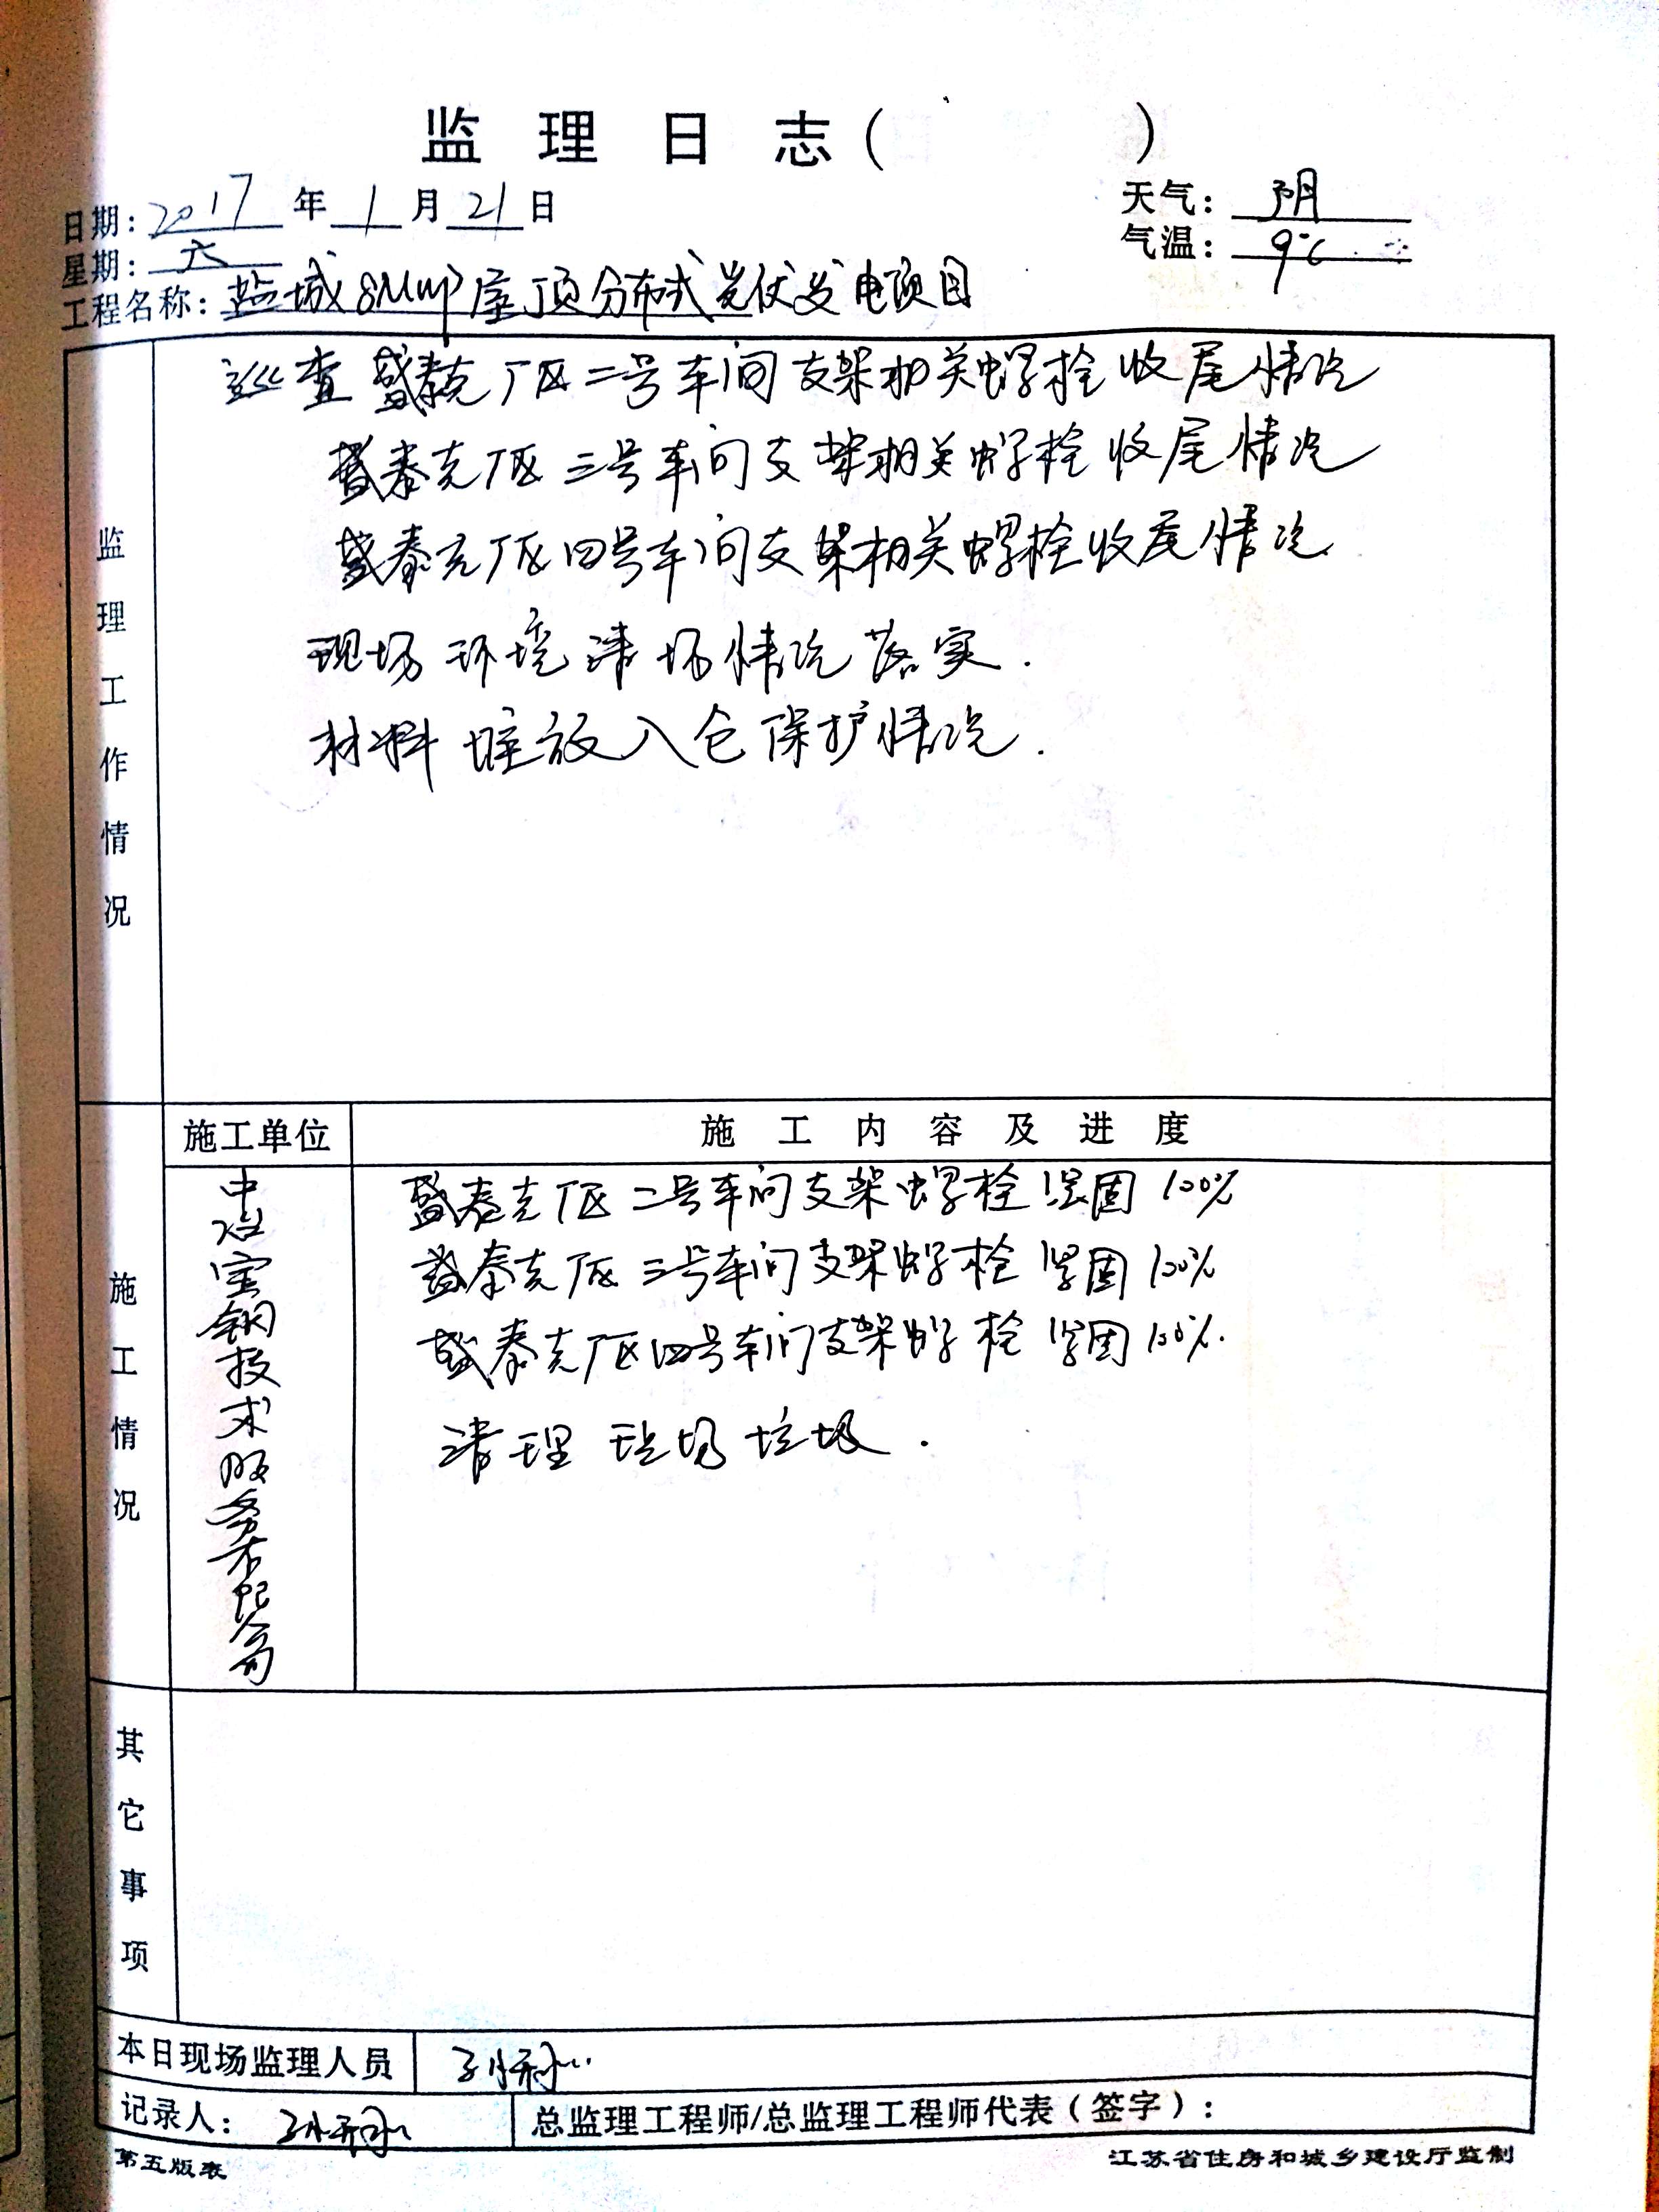 监理日志（ ）
日期：2017年1月21日
天气：阴
星期：六
气温：9℃
工程名称：盐城8MWP屋顶分布式光伏发电项目
监理工作情况
巡查盛泰克厂区二号车间支架相关螺栓收尾情况
盛泰克厂区三号车间支架相关螺栓收尾情况
盛泰克厂区四号车间支架相关螺栓收尾情况
现场环境清场情况落实.
材料堆放入仓保护情况.
施工情况
施工单位
施工内容及进度
中冶宝钢技术服务有限公司
盛泰克厂区二号车间支架螺栓紧固100%
盛泰克厂区三号车间支架螺栓紧固100%
盛泰克厂区四号车间支架螺栓紧固100%.
清理现场垃圾.
其它事项
本日现场监理人员
记录人：
总监理工程师/总监理工程师代表（签字）：
第五版表
江苏省住房和城乡建设厅监制